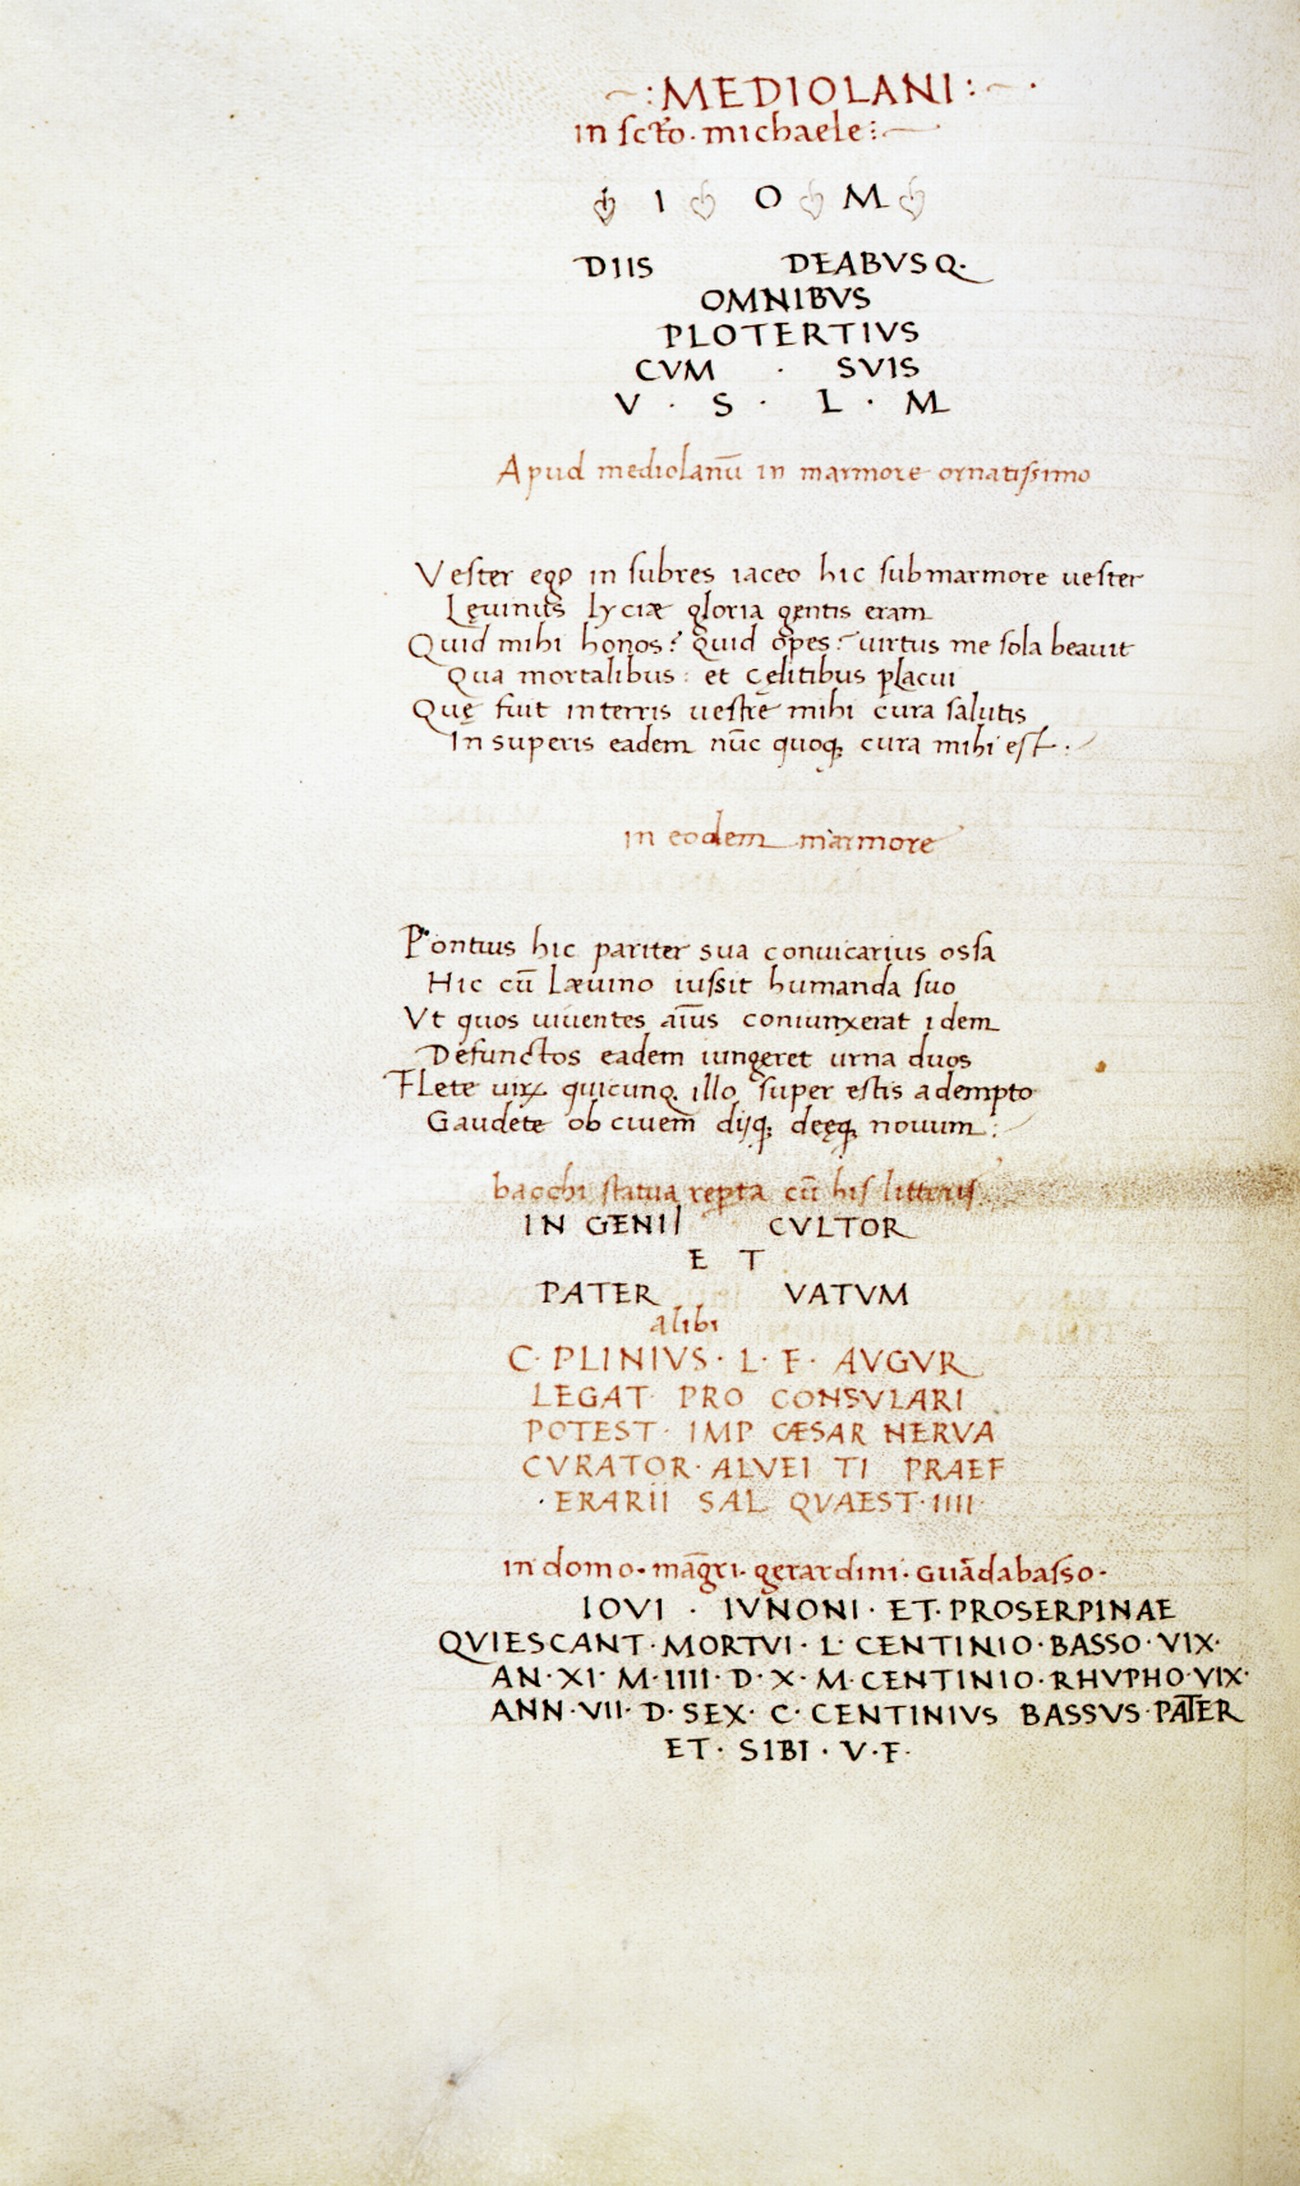 ~:MEDIOLANI:~·
in scto. michaele:
I O M
DIIS DEABVSQ.
OMNIBVS
PLOTERTIVS
CVM · SVIS
V · S · L · M
Apud mediolanū in marmore ornatissimo
Vester ego in subres iaceo hic submarmore uester
Lęuinus lyciæ gloria gentis eram
Quid mihi honos? Quid opes? uirtus me sola beauit
Qua mortalibus: et cęlitibus placui
Quę fuit interris uestrę mihi cura salutis
In superis eadem nūc quoq; cura mihi est.
in eodem marmore
Pontius hic pariter sua conuicarius ossa
Hic cū Læuino iussit humanda suo
Vt quos uiuentes aīus coniunxerat idem
Defunctos eadem iungeret urna duos
Flete uiꝝ quicunq. illo super estis adempto
Gaudete ob ciuem dijq; dęęq; nouum:
bacchi statua repta cū his litteris
IN GENII CVLTOR
E T
PATER VATVM
alibi
C· PLINIVS· L· F· AVGVR
LEGAT· PRO CONSVLARI
POTEST· IMP CÆSAR NERVA
CVRATOR· ALVEI TI PRAEF
·ERARII SAL QVAEST·IIII·
in domo· māgri· gerardini· Guādabasso·
IOVI · IVNONI· ET· PROSERPINAE
QVIESCANT· MORTVI· L· CENTINIO· BASSO· VIX·
AN· XI· M· IIII· D· X· M· CENTINIO· RHVPHO· VIX·
ANN· VII· D· SEX· C· CENTINIVS BASSVS· PATER
ET· SIBI · V·F·